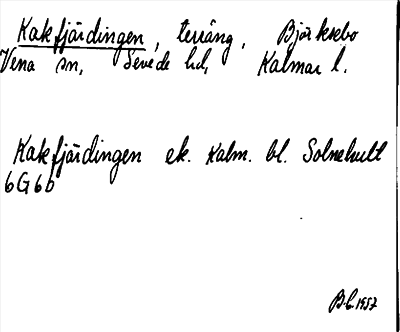 Kakfjärdingen, terräng, Björksebo
Vena sn, Sevede hd, Kalmar l.
Kakfjärdingen ek. Kalm. bl. Solnehult
6G6b
B.L. 1957